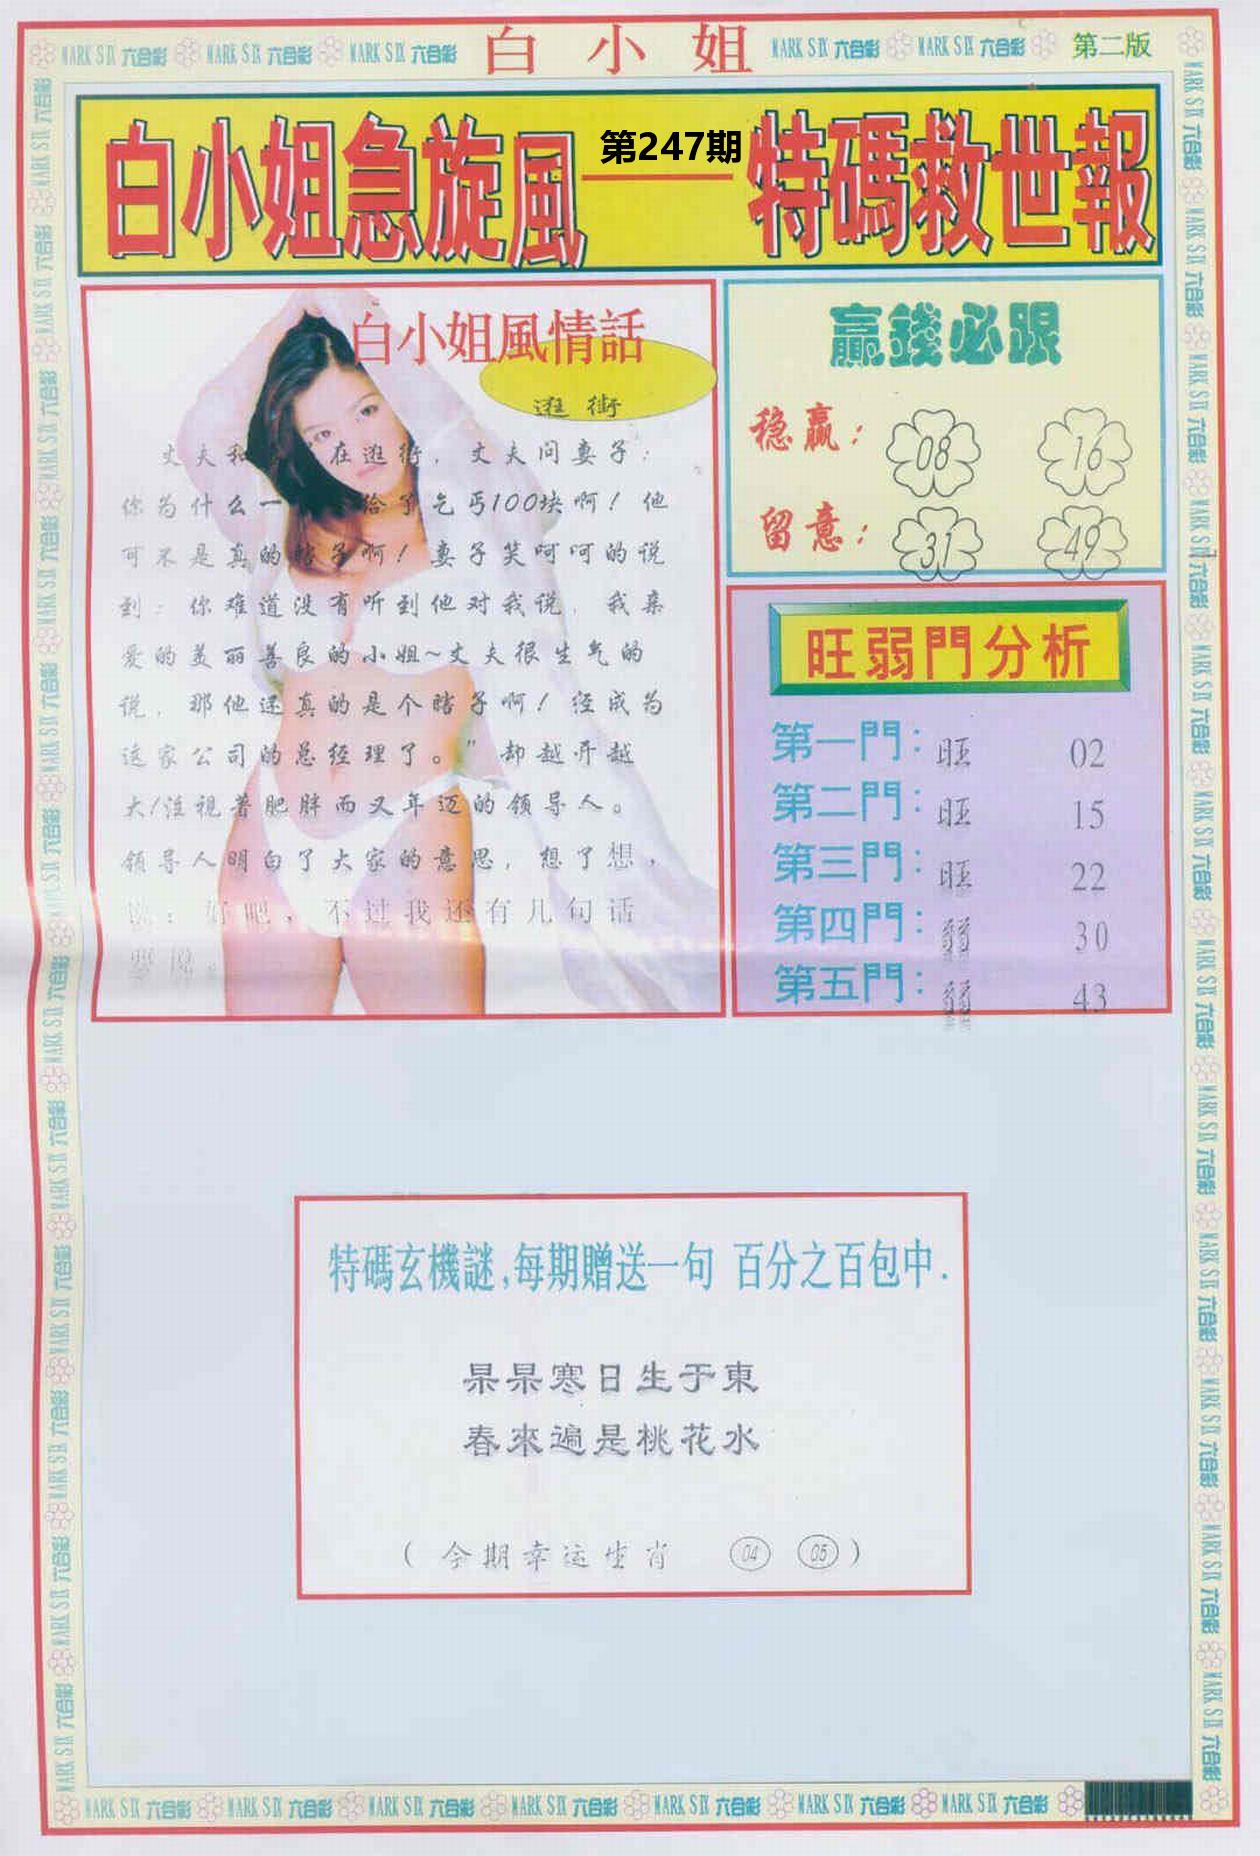 MARK SIX 六合彩 MARK SIX 六合彩 MARK SIX 六合彩 白小姐 MARK SIX 六合彩 MARK SIX 六合彩 第二版
白小姐急旋風——特碼救世報
第247期
白小姐風情話
逛街
丈夫和 在逛街，丈夫问妻子：
你为什么一 给了乞丐100块啊！他
可不是真的瞎子啊！妻子笑呵呵的说
到：你难道没有听到他对我说，我亲
爱的美丽善良的小姐~丈夫很生气的
说，那他还真的是个瞎子啊！经成为
这家公司的总经理了。”却越开越
大!注视着肥胖而又年迈的领导人。
领导人明白了大家的意思，想了想，
说：好吧，不过我还有几句话
贏錢必跟
稳赢： 08 16
留意： 31 49
旺弱門分析
第一門：旺 02
第二門：旺 15
第三門：旺 22
第四門：弱 30
第五門：弱 43
特碼玄機謎,每期贈送一句 百分之百包中.
杲杲寒日生于東
春來遍是桃花水
（今期幸运生肖 04 05）
MARK SIX 六合彩 MARK SIX 六合彩 MARK SIX 六合彩 MARK SIX 六合彩 MARK SIX 六合彩 MARK SIX 六合彩 MARK SIX 六合彩